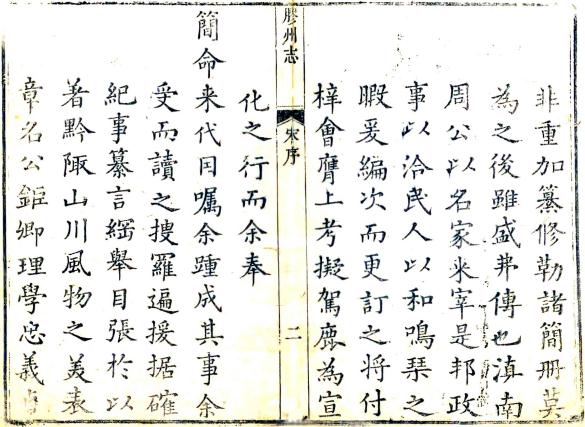 非重加纂修勒諸簡冊莫
為之後雖盛弗傳也滇南
周公以名家来宰是邦政
事以洽民人以和鳴琴之
暇爰編次而更訂之将付
梓會膺上考擬駕鹿為宣
膠州志
宋序
二
化之行而余奉
簡命来代因囑余踵成其事余
受而讀之搜羅遍援據確
紀事纂言綱舉目張於以
著黔陬山川風物之美表
章名公鉅卿理學忠義